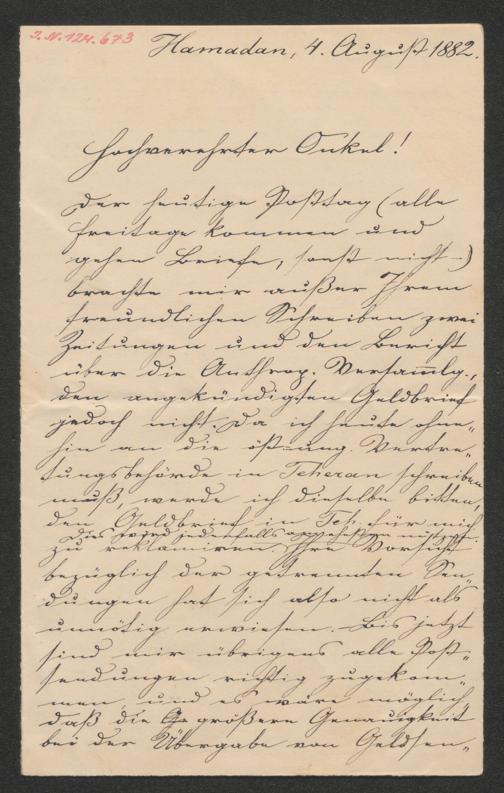 J.N. 124.673
Hamadan, 4. August 1882.
Hochverehrter Onkel!
Der heutige Posttag (alle
Freitage kommen und
gehen Briefe, sonst nicht -)
brachte mir außer Ihrem
freundlichen Schreiben zwei
Zeitungen und den Bericht
über die Anthrop. Versammlg.,
den angekündigten Geldbrief
jedoch nicht. Da ich heute ohne„
hin an die öst-ung. Vertre„
tungsbehörde in Teheran schreiben
muß, werde ich dieselbe bitten,
den Geldbrief in Teh. für mich
Dies wird jedenfalls
zu reklamiren. Ihre Vorsicht
bezüglich der getrennten Sen„
dungen hat sich also nicht als
unnötig erwiesen. Bis jetzt
sind mir übrigens alle Post„
sendungen richtig zugekom„
men und es wäre möglich
daß die größere Genauigkeit
bei der Übergabe von Geldsen„